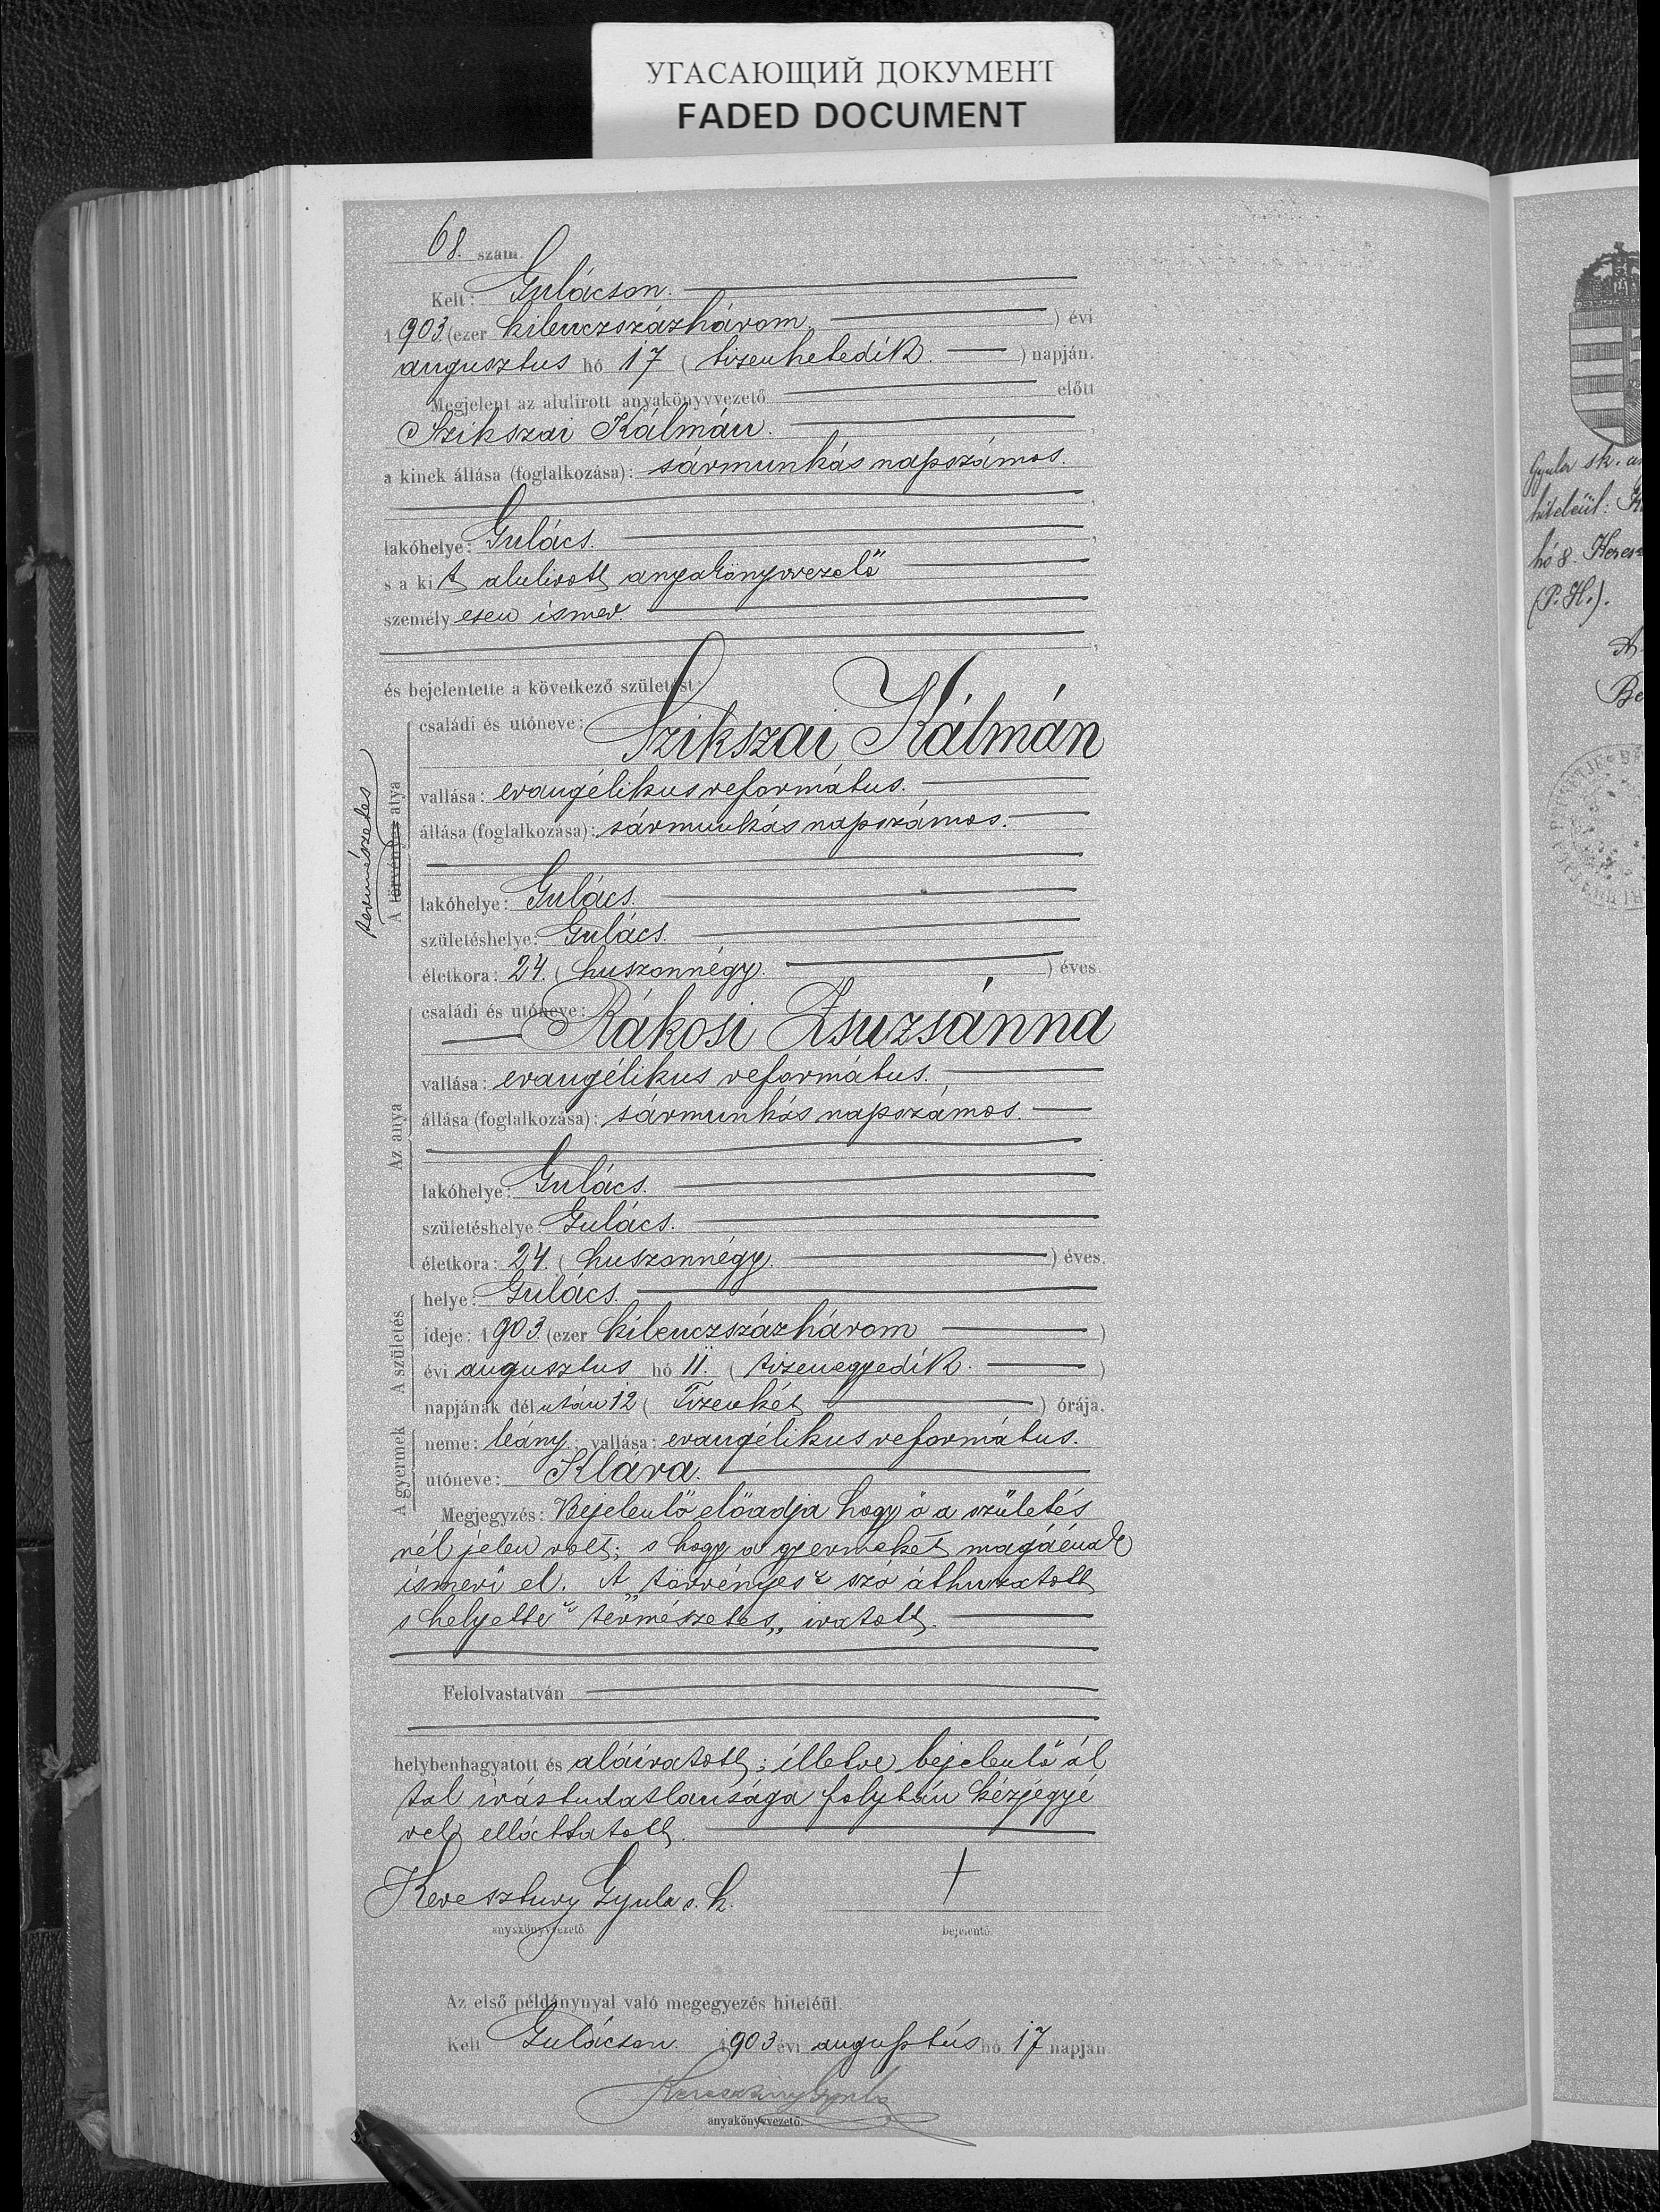 УГАСАЮЩИЙ ДОКУМЕНТ
FADED DOCUMENT
68. szám.
Kelt: Gulácson.
1903 (ezer kilenczszázhárom ) évi
augusztus hó 17 ( tizenhetedik. ) napján.
Megjelent az alulirott anyakönyvvezető előtt
Szikszai Kálmán. ,
a kinek állása (foglalkozása): sármunkás napszámos.
,
lakóhelye: Gulács. ,
s a kit alulirott anyakönyvvezető
személyesen ismer.
,
és bejelentette a következő születést:
természetes
A törvényes atya
családi és utóneve: Szikszai Kálmán
vallása: evangélikus református.
állása (foglalkozása): sármunkás napszámos.
lakóhelye: Gulács.
születéshelye: Gulács.
életkora: 24. ( huszonnégy. ) éves.
Az anya
családi és utóneve: Rákosi Zsuzsánna
vallása: evangélikus református.
állása (foglalkozása): sármunkás napszámos.
lakóhelye: Gulács.
születéshelye: Gulács.
életkora: 24. ( huszonnégy. ) éves.
A születés
helye: Gulács.
ideje: 1903. (ezer kilenczszázhárom )
évi augusztus hó 11. ( tizenegyedik. )
napjának délután 12 ( Tizenkét ) órája.
A gyermek
neme: leány.; vallása: evangélikus református.
utóneve: Klára.
Megjegyzés: Bejelentő előadja hogy ő a születés
nél jelen volt; s hogy a gyermeket magáénak
ismeri el. A „törvényes“ szó áthuzatott
s helyette “természetes„ iratott.
Felolvastatván
helybenhagyatott és aláiratott; illetve bejelentő ál
tal irástudatlansága folytán kézjegyé
vel elláttatott.
Keresztury Gyula s. k. +
anyakönyvvezető. bejelentő.
Az első példánynyal való megegyezés hiteléül.
Kelt Gulácson. 1903 évi augusztus hó 17 napján.
Keresztury Gyula
anyakönyvvezető.
Gyula sk. a
hiteléül: K
hó 8. Keres
(P. H.).
A
Be